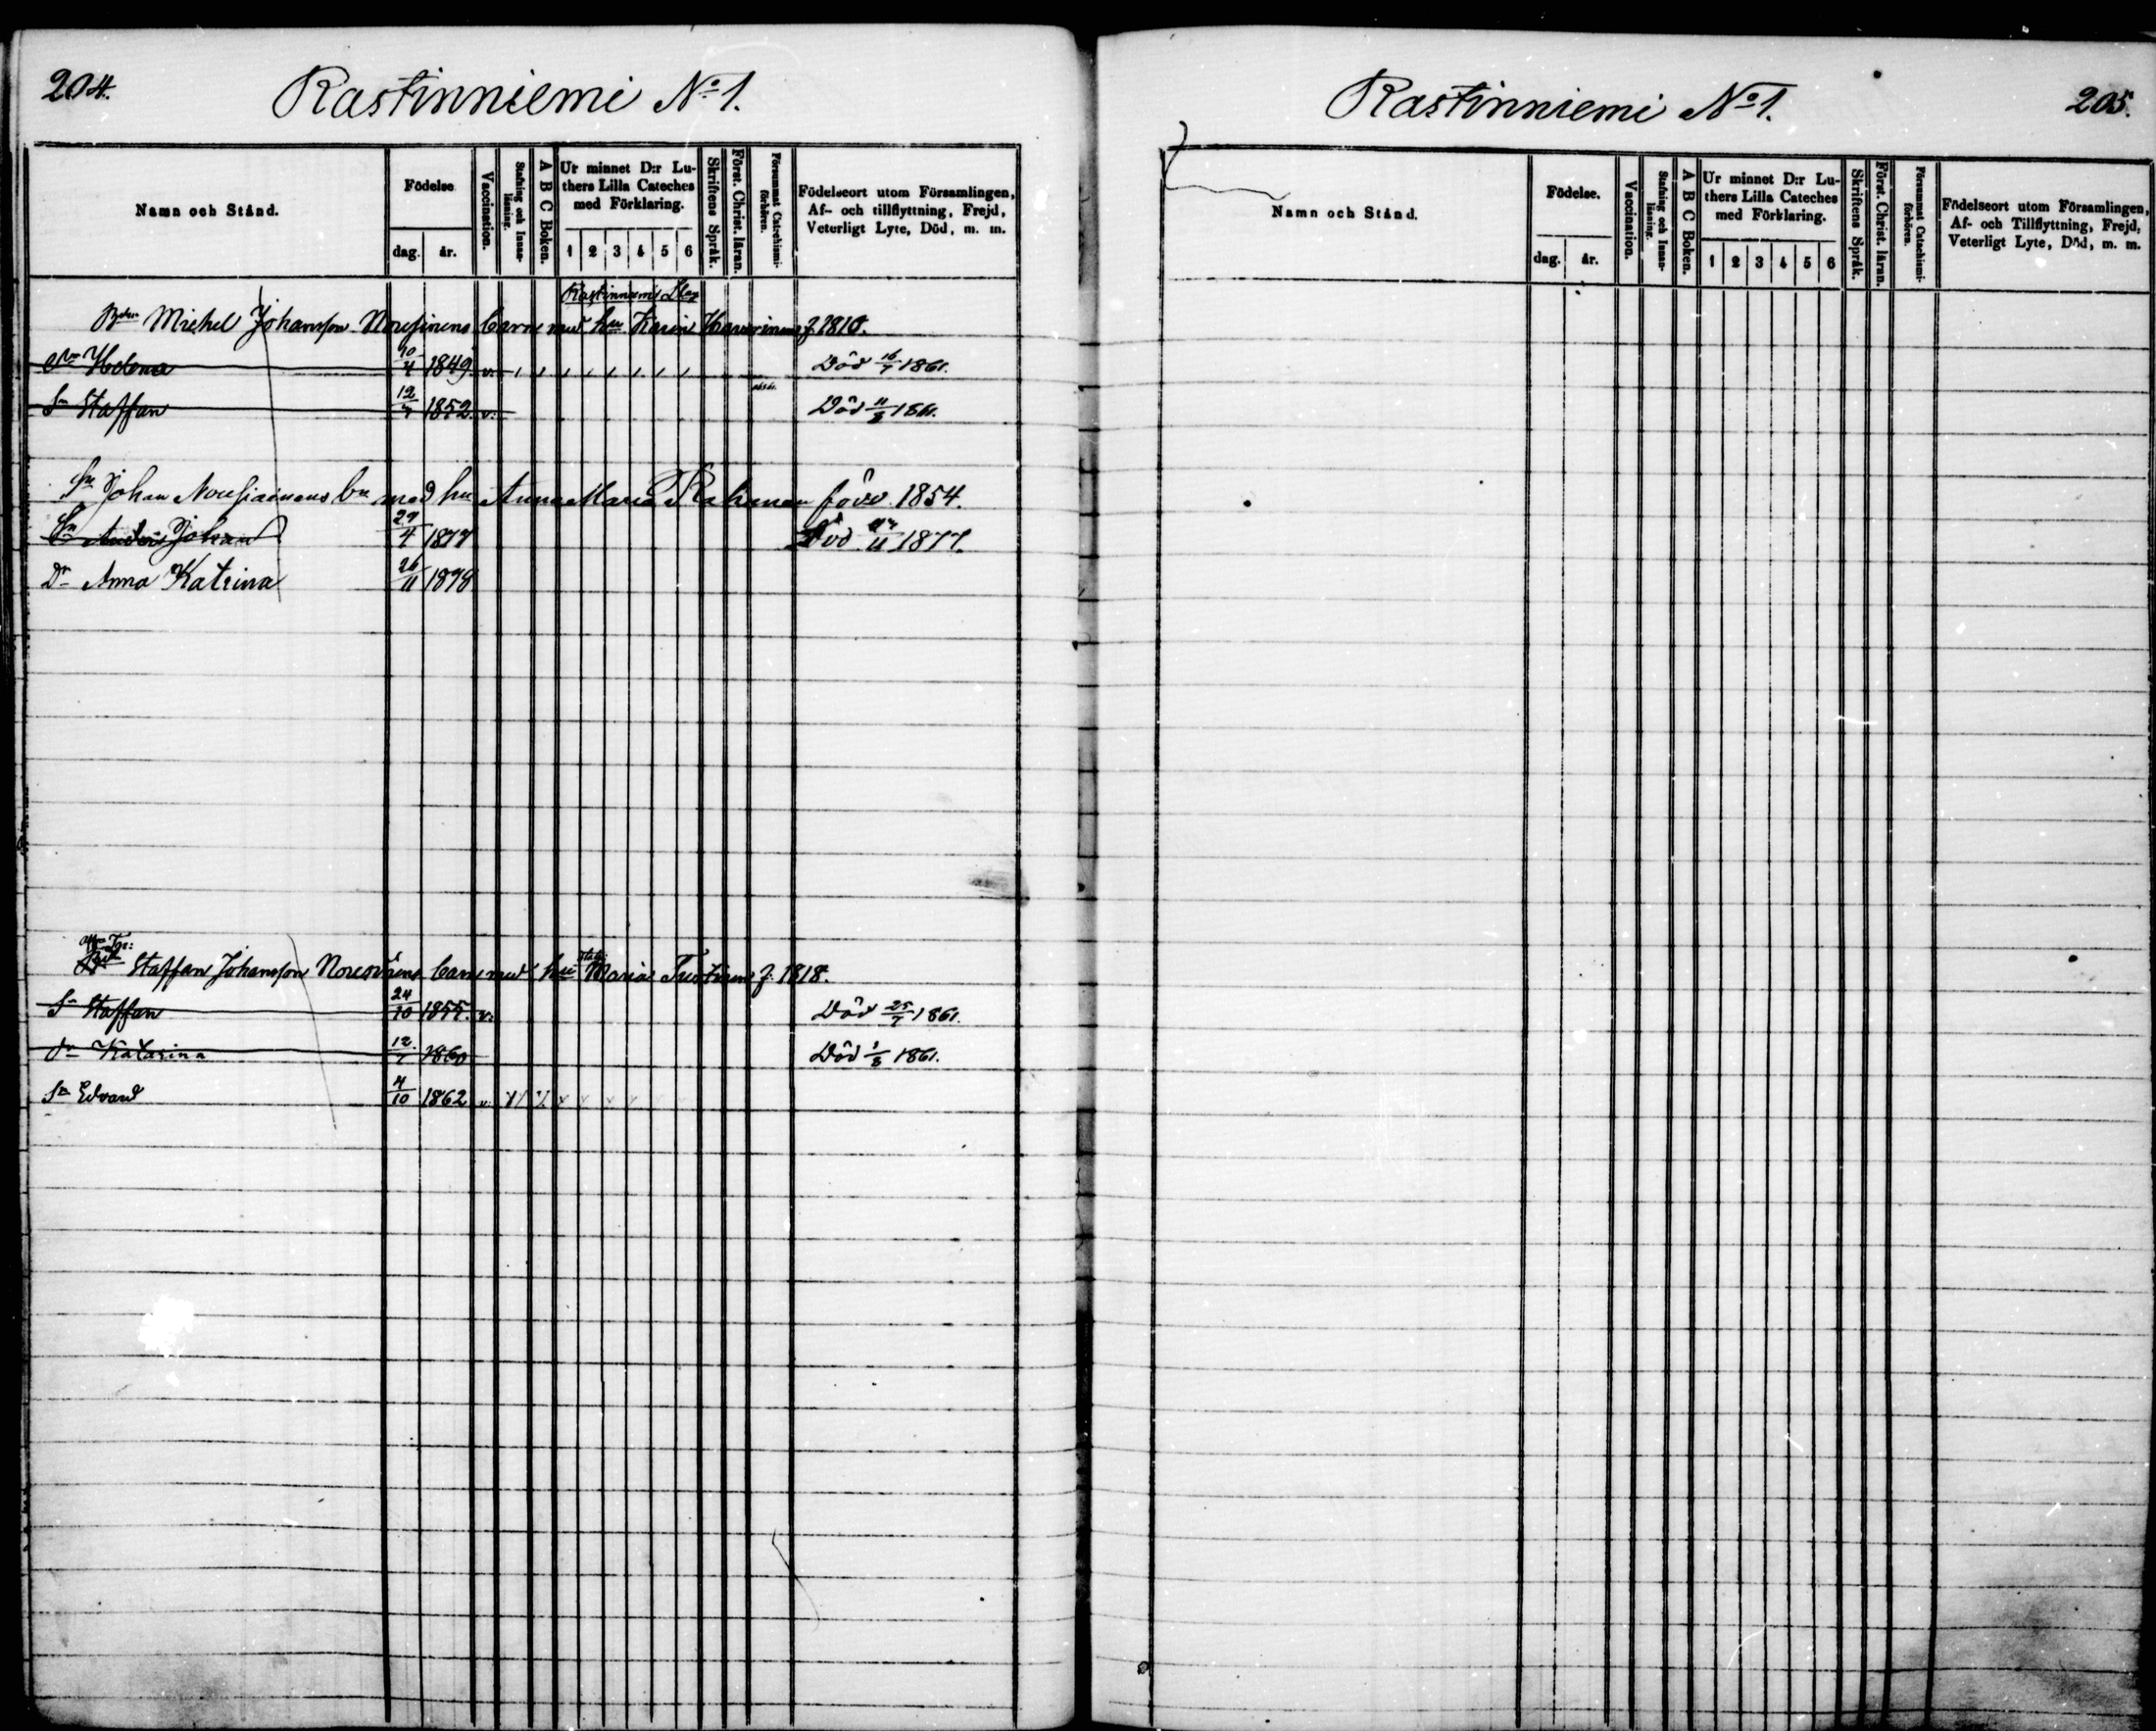 204.
Rastinniemi No 1.
Namn och Stånd.
Födelse
dag. år.
Vaccination.
Stafning och Innan-läsning.
A B C Boken.
Ur minnet D:r Lu-
thers Lilla Cateches
med Förklaring.
1 2 3 4 5 6
Skriftens Språk.
Först. Christ. läran.
Försummat Catechismi-förhören.
Födelseort utom Församlingen,
Af- och tillflyttning, Frejd,
Veterligt Lyte, Död, m. m.
Rastinniemi
Michel Johansson Nousiainens barn med hu Karin f. 1810.
Dr Helena 10/4 1849 v. Död 16/7 1861.
Sn Staffan 12/7 1852 v. Död 11/8 1861.
Johan Nousiainens bn med hu Anna Maria född 1854.
Sn Anders Johan 29/4 1877 Död 11 1877.
Dr Anna Katrina 26/11 1878
Staffan Johansson barn med hu Maria f. 1818.
Sn Staffan 24/10 1855. v. Död 25/7 1861.
Dr Katarina 12/7 1860 Död 1/8 1861.
Sn Edvard 4/10 1862 v.
Rastinniemi No 1.
205.
Namn och Stånd.
Födelse.
dag. år.
Vaccination.
Stafning och Innan-läsning.
A B C Boken.
Ur minnet D:r Lu-
thers Lilla Cateches
med Förklaring.
1 2 3 4 5 6
Skriftens Språk.
Först. Christ. läran.
Försummat Catechismi-förhören.
Födelseort utom Församlingen,
Af- och Tillflyttning, Frejd,
Veterligt Lyte, Död, m. m.